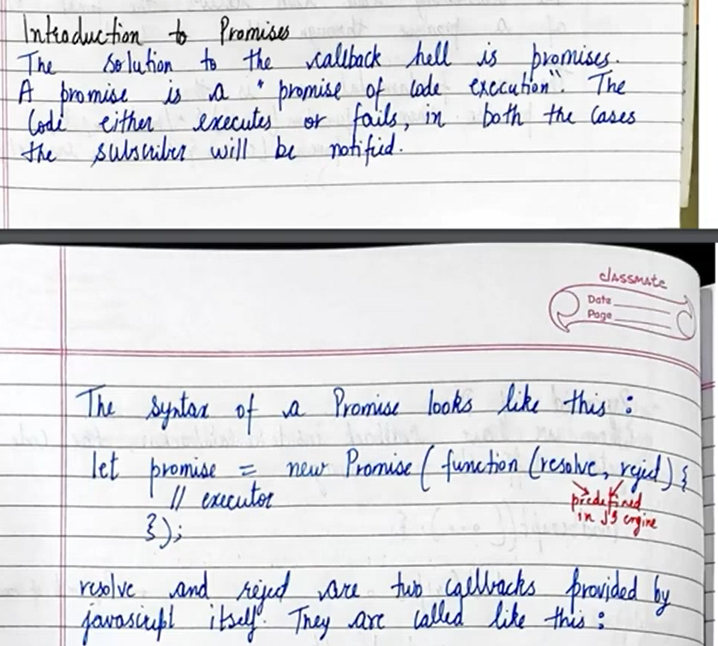 Introduction to Promises
The solution to the callback hell is promises.
A promise is a "promise of code execution". The
Code either executes or fails, in both the cases
the subscriber will be notified.
classmate
Date
Page
The syntax of a Promise looks like this :
let promise = new Promise ( function (resolve, reject) {
predefined
in JS engine
// executor
});
resolve and reject are two callbacks provided by
javascript itself. They are called like this :